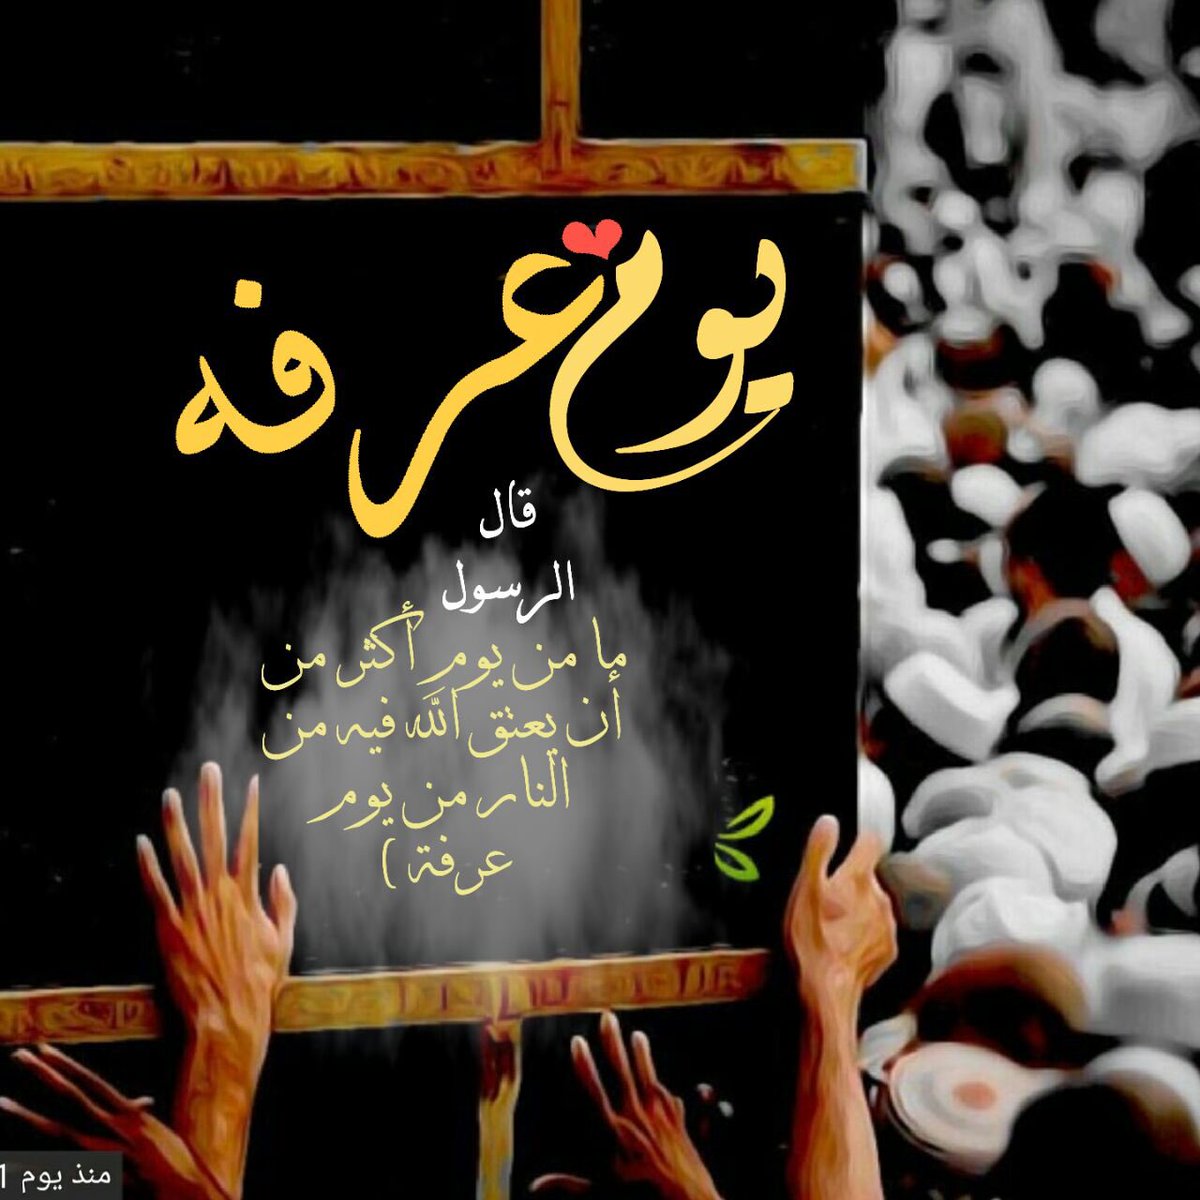 يوم عرفه
قال
الرسول
ما من يوم أكثر من
أن يعتق الله فيه من
النار من يوم
عرفة )
منذ يوم 1